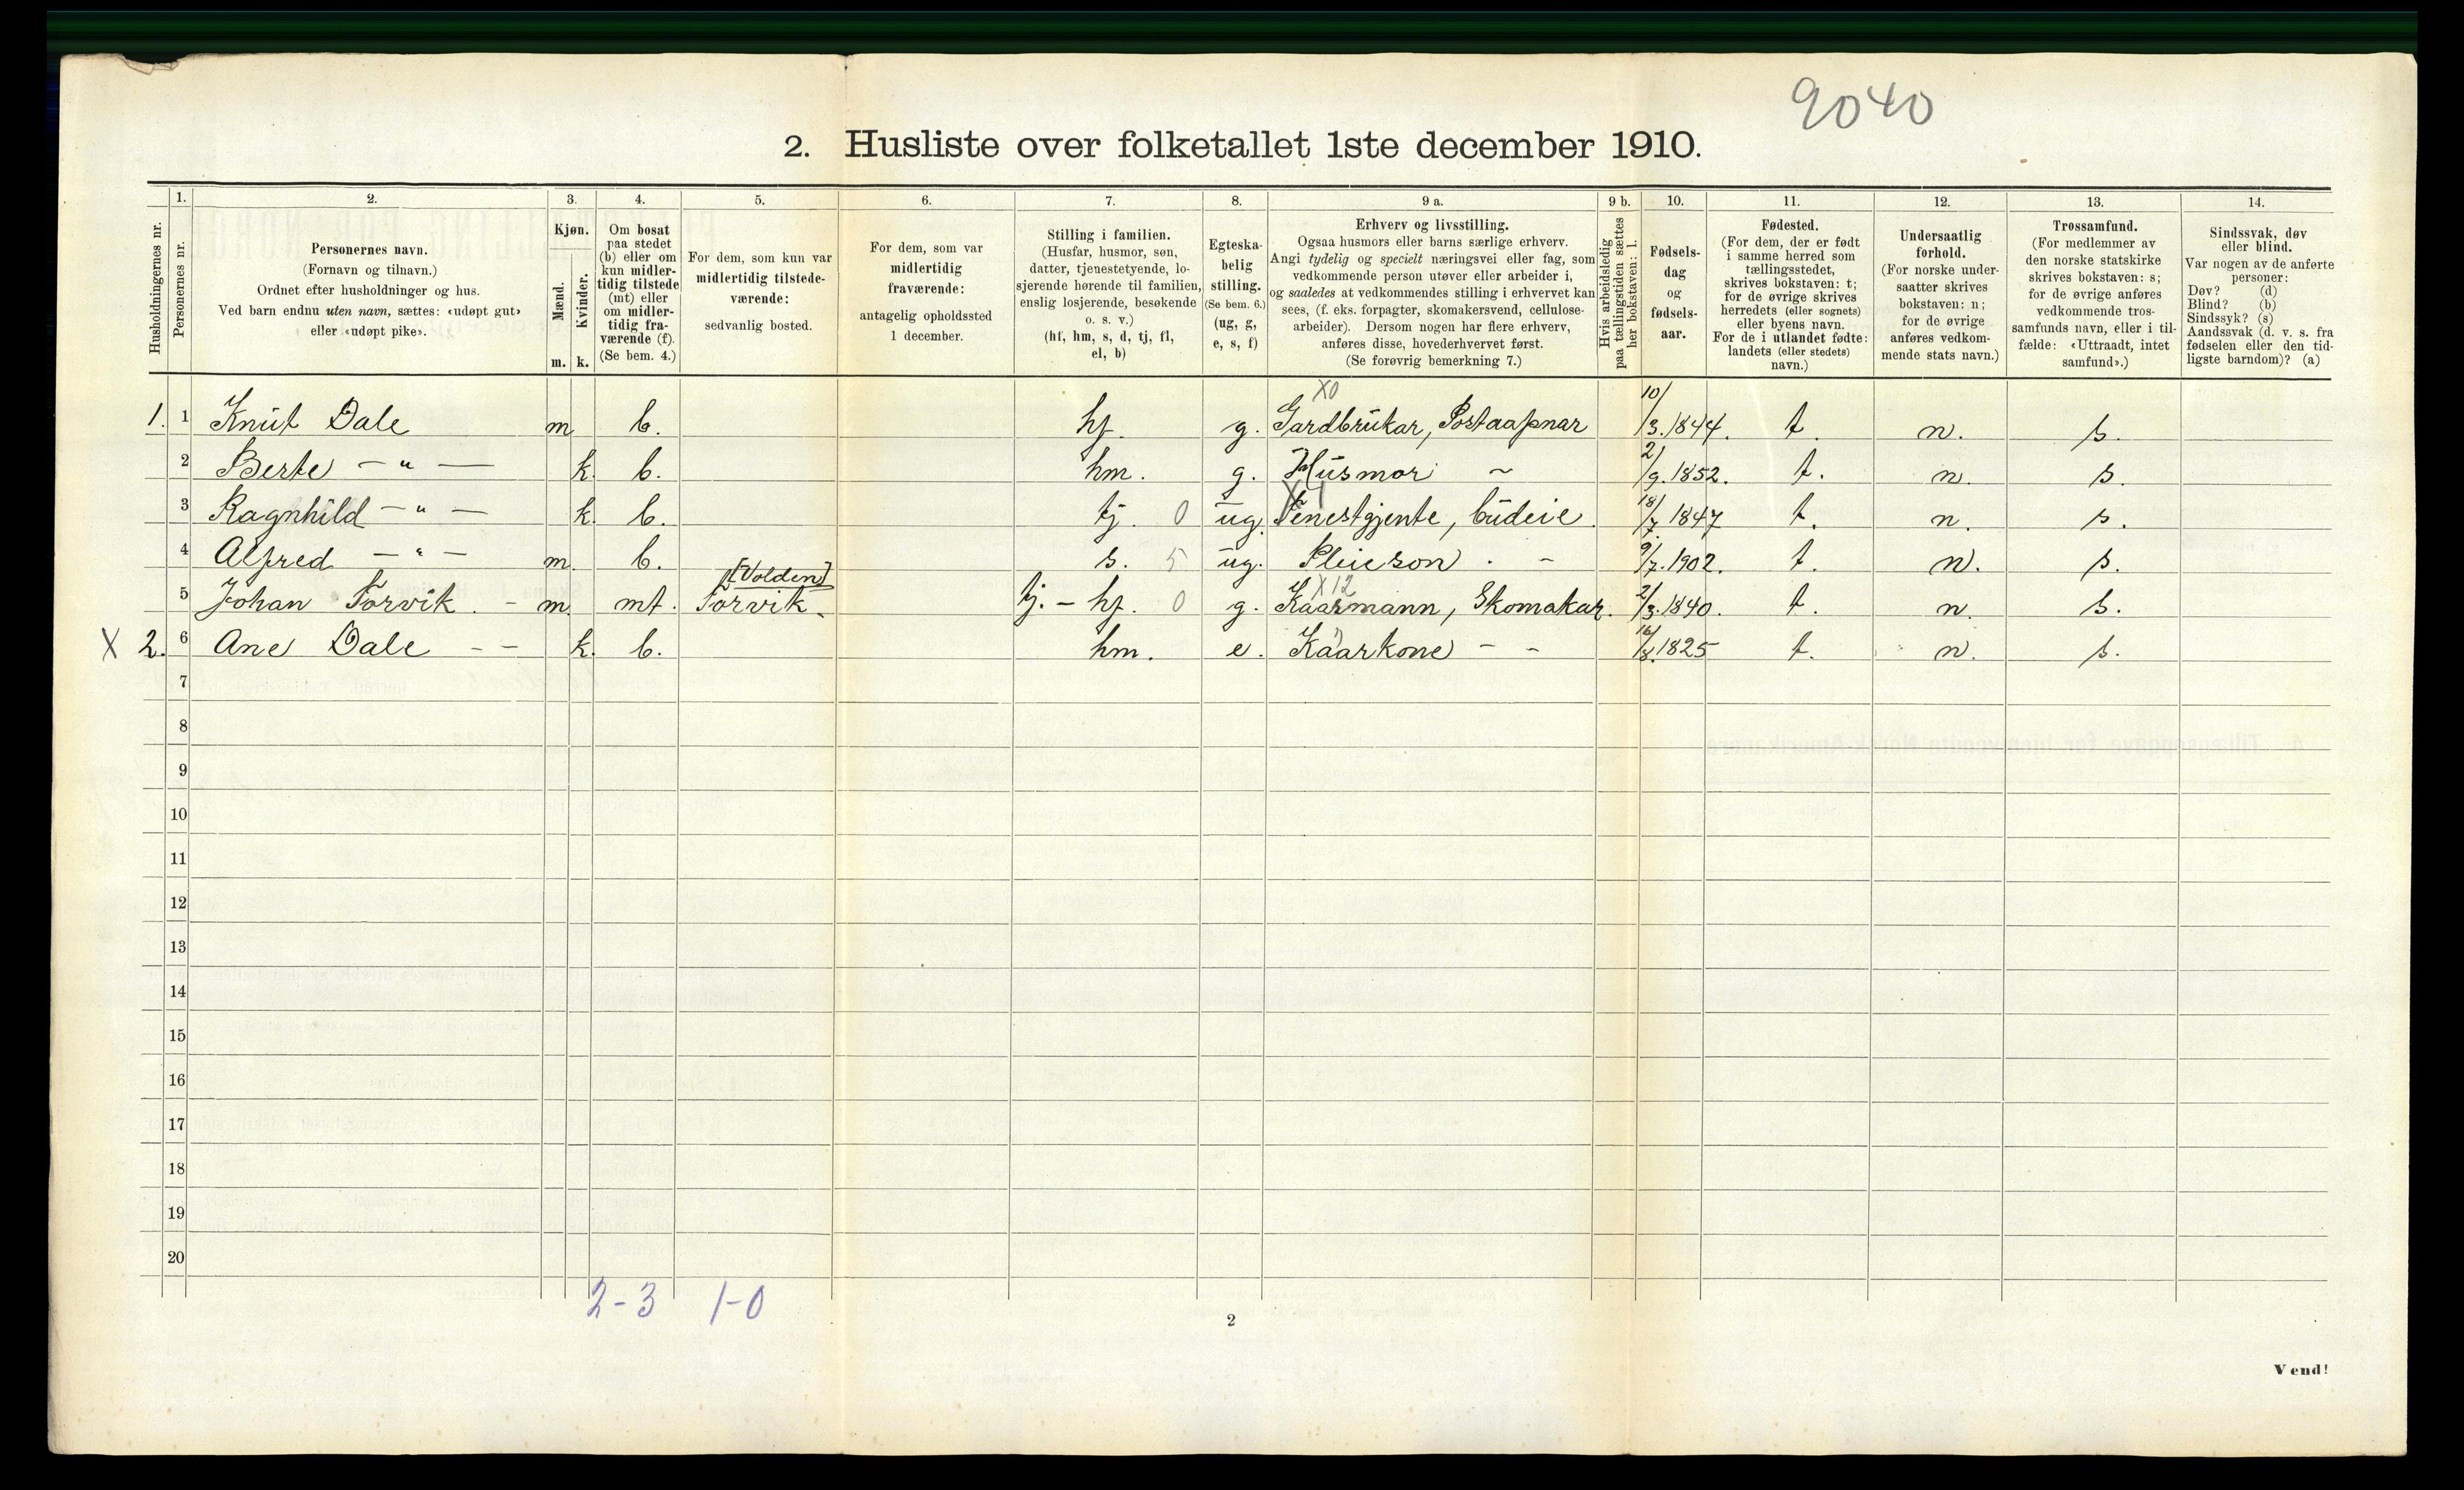 9040
2. Husliste over folketallet 1ste december 1910.
1. 2. 3. 4. 5. 6. 7. 8. 9 a. 9 b. 10. 11. 12. 13. 14.
Husholdningernes nr.
Personernes nr.
Personernes navn.
(Fornavn og tilnavn.)
Ordnet efter husholdninger og hus.
Ved barn endnu uten navn, sættes: «udøpt gut»
eller «udøpt pike».
Kjøn.
Mænd.
Kvinder.
m. k.
Om bosat
paa stedet
(b) eller om
kun midler-
tidig tilstede
(mt) eller
om midler-
tidig fra-
værende (f).
(Se bem. 4.)
For dem, som kun var
midlertidig tilstede-
værende:
sedvanlig bosted.
For dem, som var
midlertidig
fraværende:
antagelig opholdssted
1 december.
Stilling i familien.
(Husfar, husmor, søn,
datter, tjenestetyende, lo-
sjerende hørende til familien,
enslig losjerende, besøkende
o. s. v.)
(hf, hm, s, d, tj, fl,
el, b)
Egteska-
belig
stilling.
(Se bem. 6.)
(ug, g,
e, s, f)
Erhverv og livsstilling.
Ogsaa husmors eller barns særlige erhverv.
Angi tydelig og specielt næringsvei eller fag, som
vedkommende person utøver eller arbeider i,
og saaledes at vedkommendes stilling i erhvervet kan
sees, (f. eks. forpagter, skomakersvend, cellulose-
arbeider). Dersom nogen har flere erhverv,
anføres disse, hovederhvervet først.
(Se forøvrig bemerkning 7.)
Hvis arbeidsledig
paa tællingstiden sættes
her bokstaven: l.
Fødsels-
dag
og
fødsels-
aar.
Fødested.
(For dem, der er født
i samme herred som
tællingsstedet,
skrives bokstaven: t;
for de øvrige skrives
herredets (eller sognets)
eller byens navn.
For de i utlandet fødte:
landets (eller stedets)
navn.)
Undersaatlig
forhold.
(For norske under-
saatter skrives
bokstaven: n;
for de øvrige
anføres vedkom-
mende stats navn.)
Trossamfund.
(For medlemmer av
den norske statskirke
skrives bokstaven: s;
for de øvrige anføres
vedkommende tros-
samfunds navn, eller i til-
fælde: «Uttraadt, intet
samfund».)
Sindssvak, døv
eller blind.
Var nogen av de anførte
personer:
Døv? (d)
Blind? (b)
Sindssyk? (s)
Aandssvak (d. v. s. fra
fødselen eller den tid-
ligste barndom)? (a)
X0
1. 1 Knut Dale m b. hf. g. Gardbrukar, Postaapnar 10/3.1844. t. n. s.
2 Berte — " — k. b. hm. g. Husmor ~ 2/9.1852. t. n. s.
3 Ragnhild — " — k. b. tj. 0 ug. Tenestgjente, budeie. 18/7.1847 t. n. s.
4 Alfred — " — m. b. s. 5 ug. Pleieson - - 9/7.1902. t. n. s.
[Volden]
X12
5 Johan Torvik. - m. mt. Torvik. tj. - hf. 0 g. Kaarmann, Skomakar. 2/3.1840. t. n. s.
X 2. 6 Ane Dale - - k. b. hm. e. Kaarkone - - 16/8.1825 t. n. s.
7
8
9
10
11
12
13
14
15
16
17
18
19
20
2-3 1-0
2
Vend!